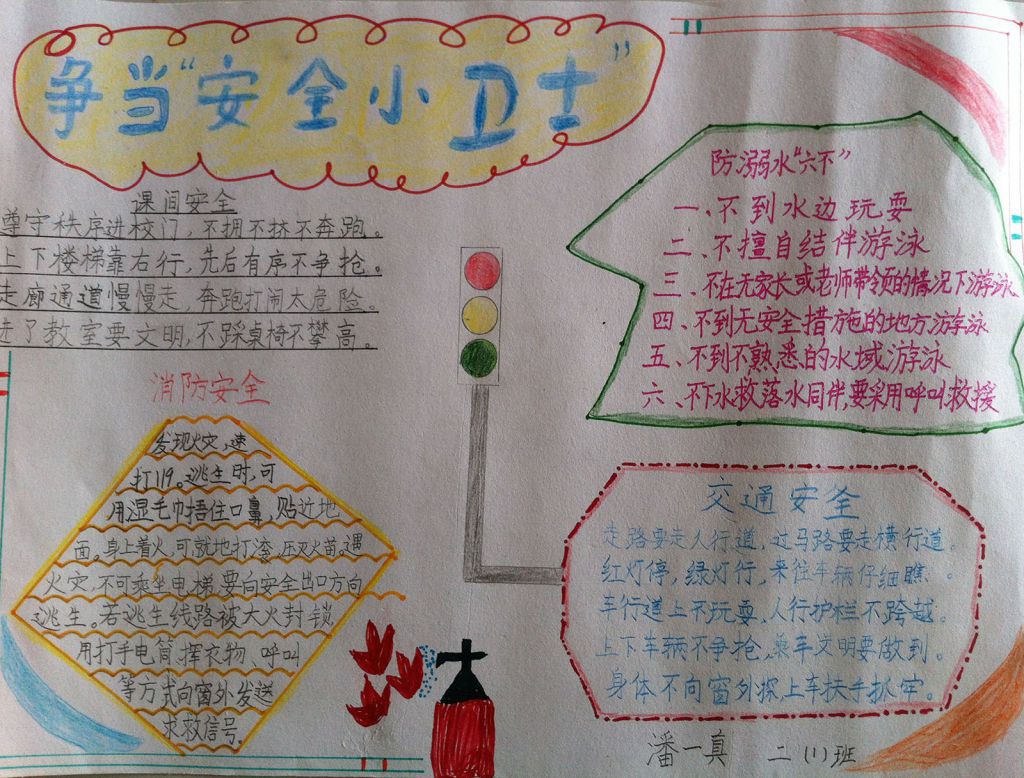 争当“安全小卫士”
课间安全
尊守秩序进校门，不拥不挤不奔跑。
上下楼梯靠右行，先后有序不争抢。
走廊通道慢慢走，奔跑打闹太危险。
进了教室要文明，不踩桌椅不攀高。
消防安全
发现火灾，速
打119。逃生时，可
用湿毛巾捂住口鼻，贴近地
面。身上着火，可就地打滚，压灭火苗。遇
火灾，不可乘坐电梯，要向安全出口方向
逃生。若逃生线路被大火封锁
用打手电筒、挥衣物、呼叫
等方式向窗外发送
求救信号。
防溺水“六不”
一、不到水边玩耍
二、不擅自结伴游泳
三、不在无家长或老师带领的情况下游泳
四、不到无安全措施的地方游泳
五、不到不熟悉的水域游泳
六、不下水救落水同伴，要采用呼叫救援
交通安全
走路要走人行道，过马路要走横行道。
红灯停，绿灯行，来往车辆仔细瞧。
车行道上不玩耍，人行护栏不跨越。
上下车辆不争抢，乘车文明要做到。
身体不向窗外探，上车扶手抓牢。
潘一真 二（1）班